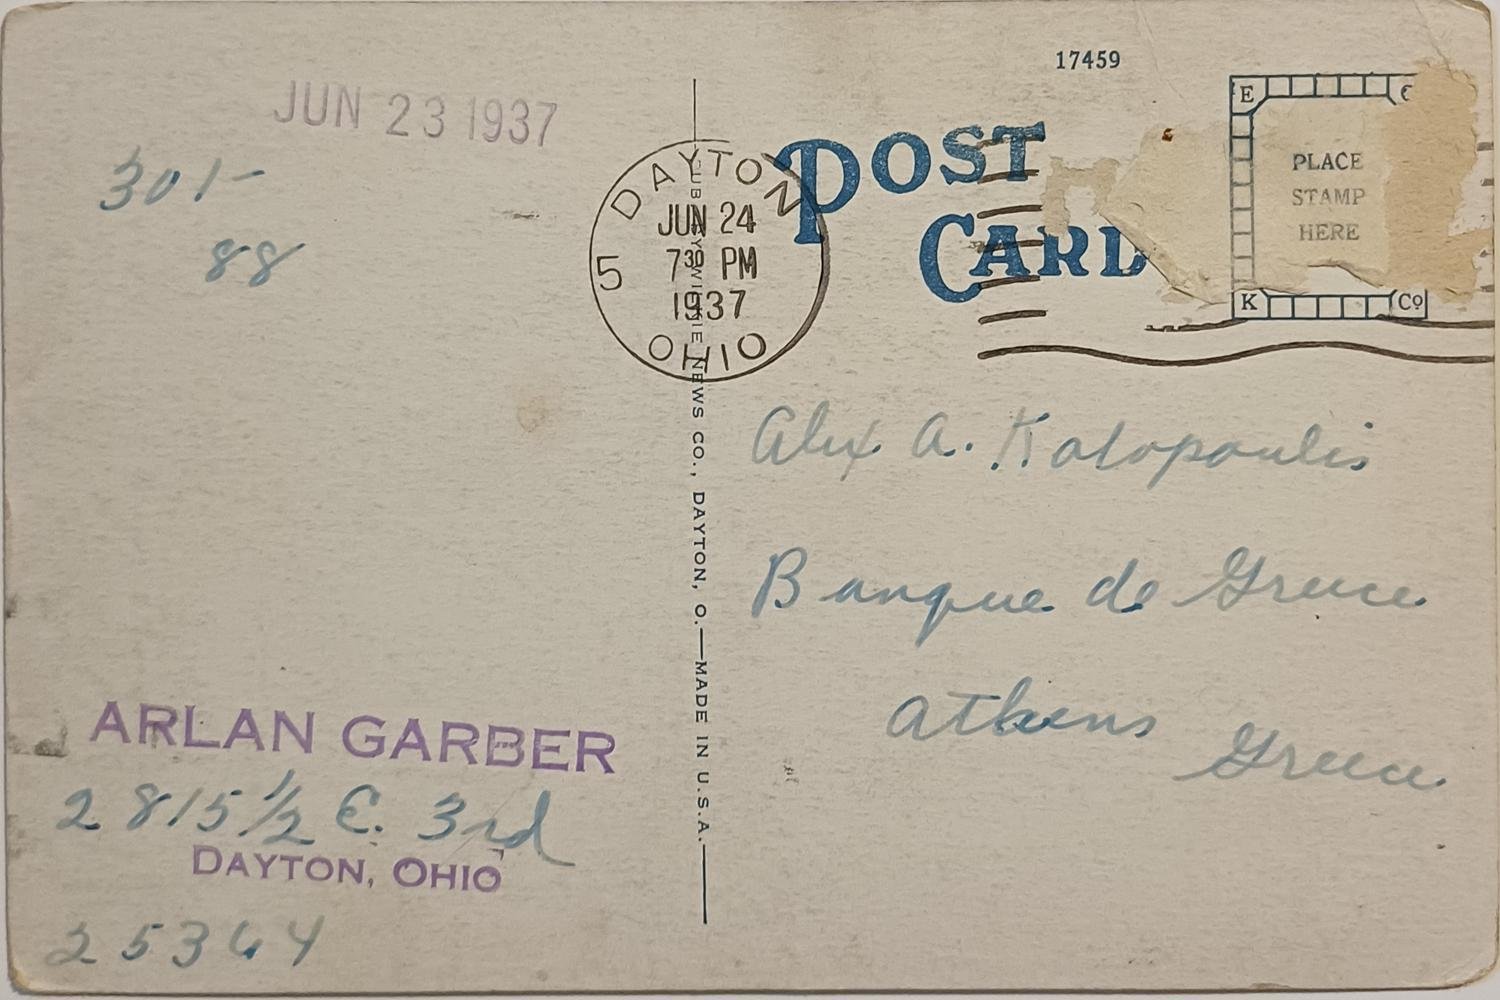 JUN 23 1937
301-
88
17459
POST
CARD
E
K Co
PLACE
STAMP
HERE
DAYTON
JUN 24
7 30 PM
1937
5
OHIO
NEWS CO., DAYTON, O.—MADE IN U.S.A.
Alex A. Kotopoulis
Banque de Greece
Athens
Greece
ARLAN GARBER
2815 1/2 E. 3rd
DAYTON, OHIO
25364